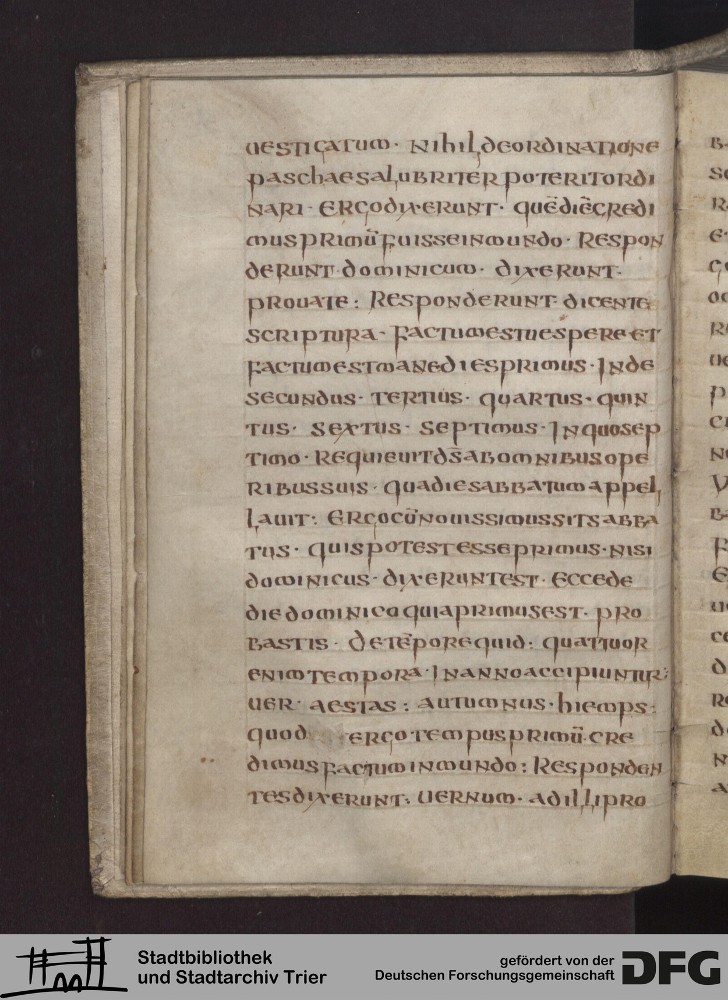 uestigatum · nihil de ordinatione
paschae salubriter poterit ordi
nari · ergo dixerunt · quē diē credi
mus primū fuisse in mundo · respon
derunt dominicum · dixerunt ·
prouate : responderunt · dicente
scriptura · factum est uespere et
factum est mane dies primus · inde
secundus · tertius · quartus · quin
tus · sextus · septimus · in quo sep
timo · requieuit d̄s ab omnibus ope
ribus suis · qua die sabbatum appel
lauit : ergo cū nouissimus sit sabba
tus · quis potest esse primus · nisi
dominicus · dixerunt est · ecce de
die dominico quia primus est · pro
bastis · de tēpore quid : quattuor
enim tempora · in anno accipiuntur :
uer · aestas : autumnus · hiemps :
quod ergo tempus primū · cre
dimus factum in mundo : responden
tes dixerunt : uernum · ad illi pro
Stadtbibliothek
und Stadtarchiv Trier
gefördert von der
Deutschen Forschungsgemeinschaft
DFG